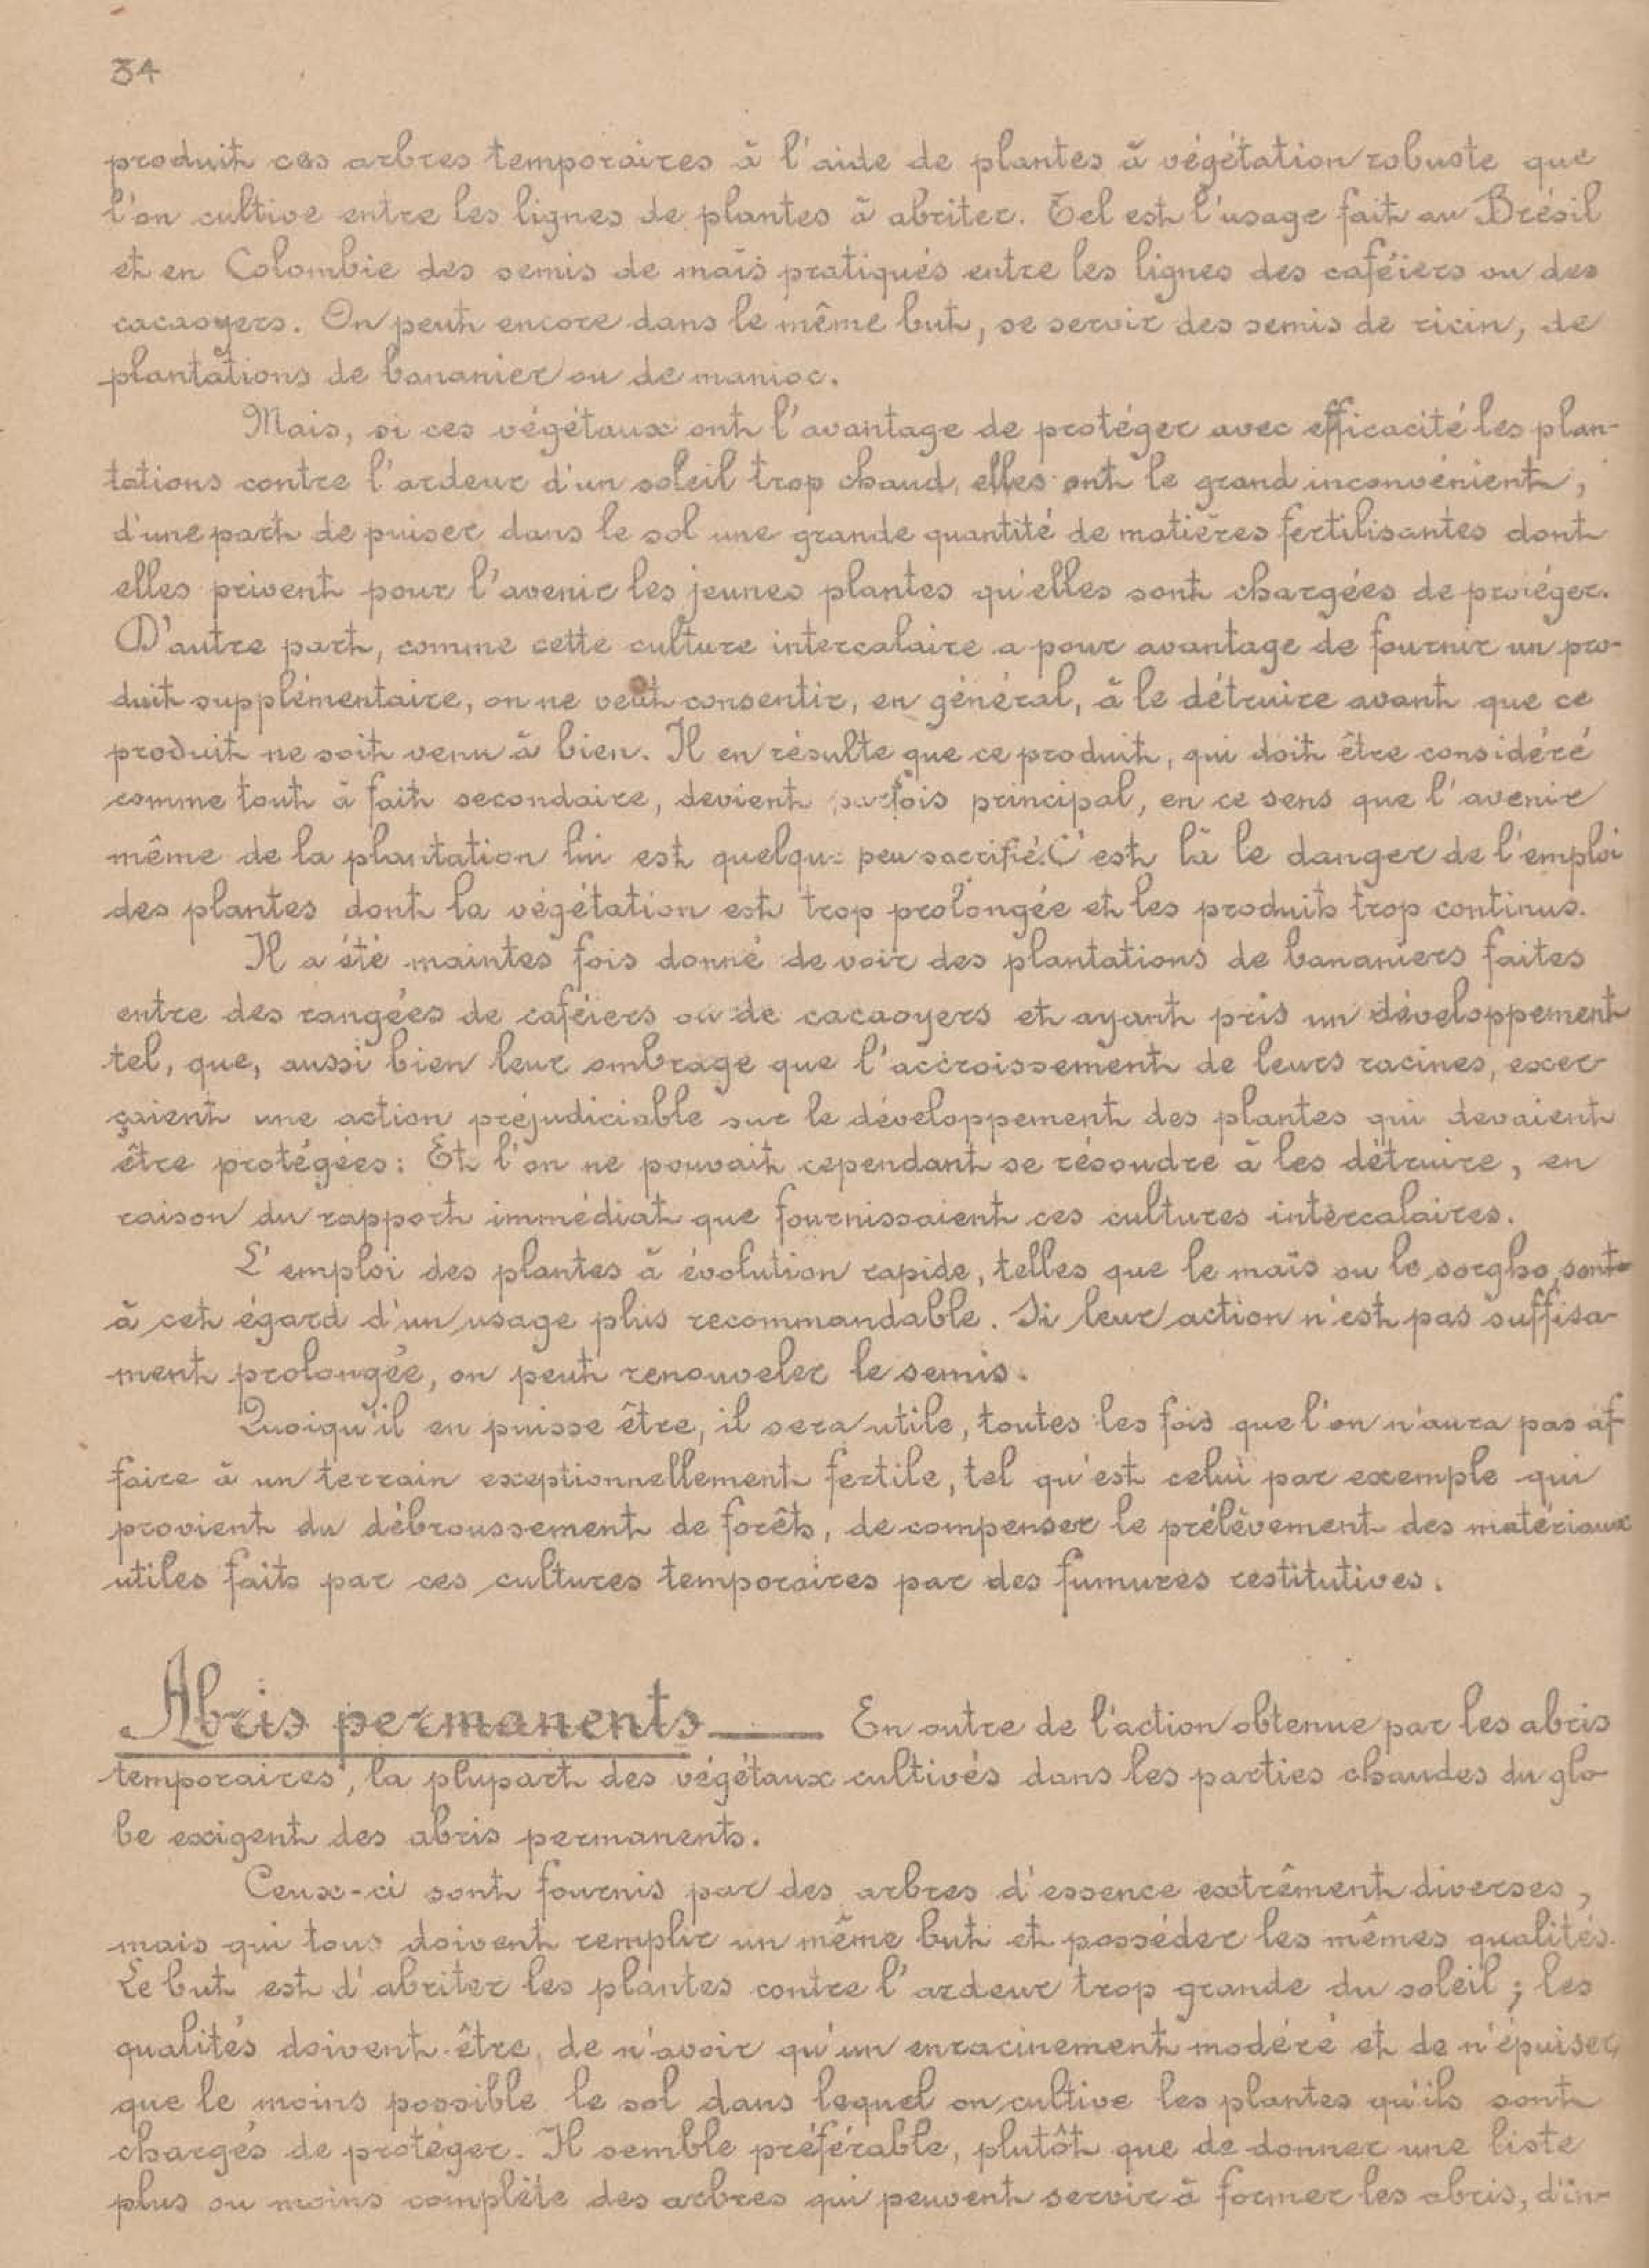 34
produit ces arbres temporaires à l'aide de plantes à végétation robuste que
l'on cultive entre les lignes de plantes à abriter. Tel est l'usage fait au Brésil
et en Colombie des semis de maïs pratiqués entre les lignes des caféiers ou des
cacaoyers. On peut encore dans le même but, se servir des semis de ricin, de
plantations de bananier ou de manioc.
Mais, si ces végétaux ont l'avantage de protéger avec efficacité les plan-
tations contre l'ardeur d'un soleil trop chaud, elles ont le grand inconvénient,
d'une part de puiser dans le sol une grande quantité de matières fertilisantes dont
elles privent pour l'avenir les jeunes plantes qu'elles sont chargées de protéger.
D'autre part, comme cette culture intercalaire a pour avantage de fournir un pro-
duit supplémentaire, on ne veut consentir, en général, à le détruire avant que ce
produit ne soit venu à bien. Il en résulte que ce produit, qui doit être considéré
comme tout à fait secondaire, devient parfois principal, en ce sens que l'avenir
même de la plantation lui est quelque peu sacrifié. C'est là le danger de l'emploi
des plantes dont la végétation est trop prolongée et les produits trop continus.
Il a été maintes fois donné de voir des plantations de bananiers faites
entre des rangées de caféiers ou de cacaoyers et ayant pris un développement
tel, que, aussi bien leur ombrage que l'accroissement de leurs racines, exer-
çaient une action préjudiciable sur le développement des plantes qui devaient
être protégées: Et l'on ne pouvait cependant se résoudre à les détruire, en
raison du rapport immédiat que fournissaient ces cultures intercalaires.
L'emploi des plantes à évolution rapide, telles que le maïs ou le sorgho, sont
à cet égard d'un usage plus recommandable. Si leur action n'est pas suffisa-
ment prolongée, on peut renouveler le semis.
Quoiqu'il en puisse être, il sera utile, toutes les fois que l'on n'aura pas af-
faire à un terrain exceptionnellement fertile, tel qu'est celui par exemple qui
provient du débroussement de forêts, de compenser le prélèvement des matériaux
utiles faits par ces cultures temporaires par des fumures restitutives.
Abris permanents — En outre de l'action obtenue par les abris
temporaires, la plupart des végétaux cultivés dans les parties chaudes du glo-
be exigent des abris permanents.
Ceux-ci sont fournis par des arbres d'essence extrêment diverses,
mais qui tous doivent remplir un même but et posséder les mêmes qualités.
Le but est d'abriter les plantes contre l'ardeur trop grande du soleil; les
qualités doivent être, de n'avoir qu'un enracinement modéré et de n'épuiser
que le moins possible le sol dans lequel on cultive les plantes qu'ils sont
chargés de protéger. Il semble préférable, plutôt que de donner une liste
plus ou moins complète des arbres qui peuvent servir à former les abris, d'in-